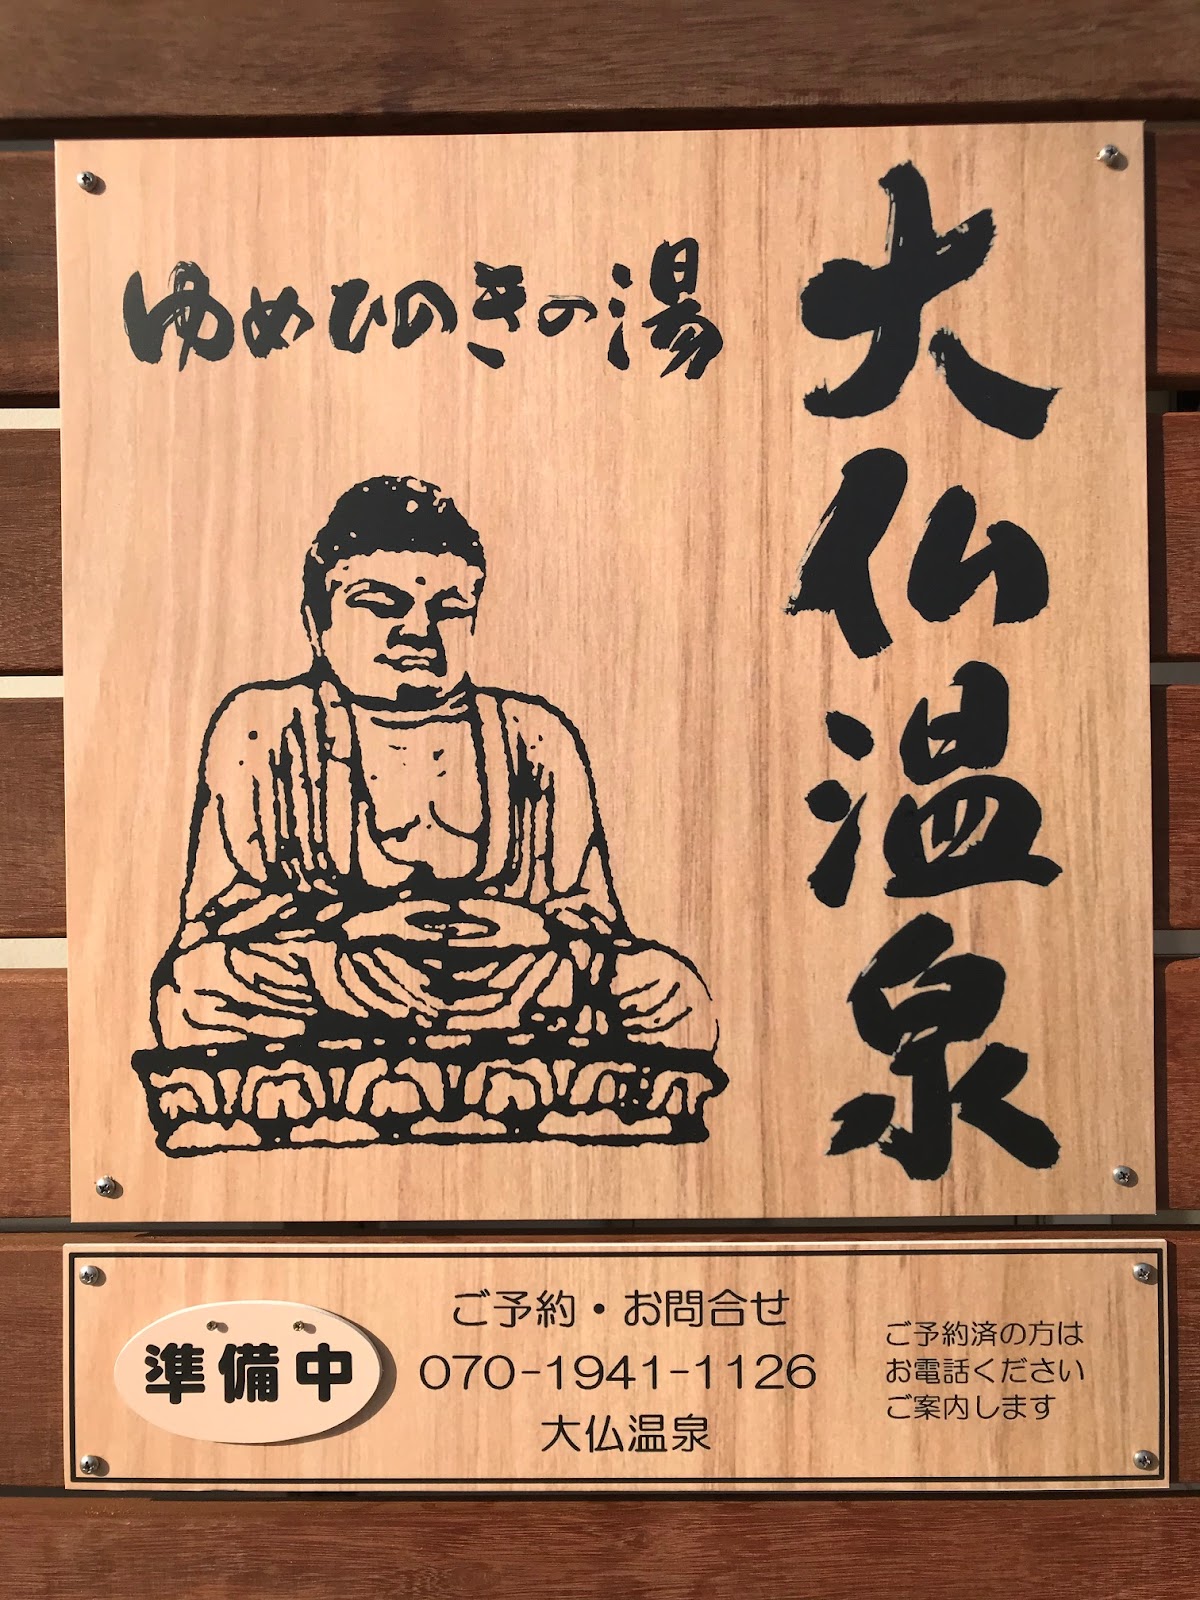 大仏温泉
ゆめひのきの湯
準備中
ご予約・お問合せ
070-1941-1126
大仏温泉
ご予約済の方は
お電話ください
ご案内します